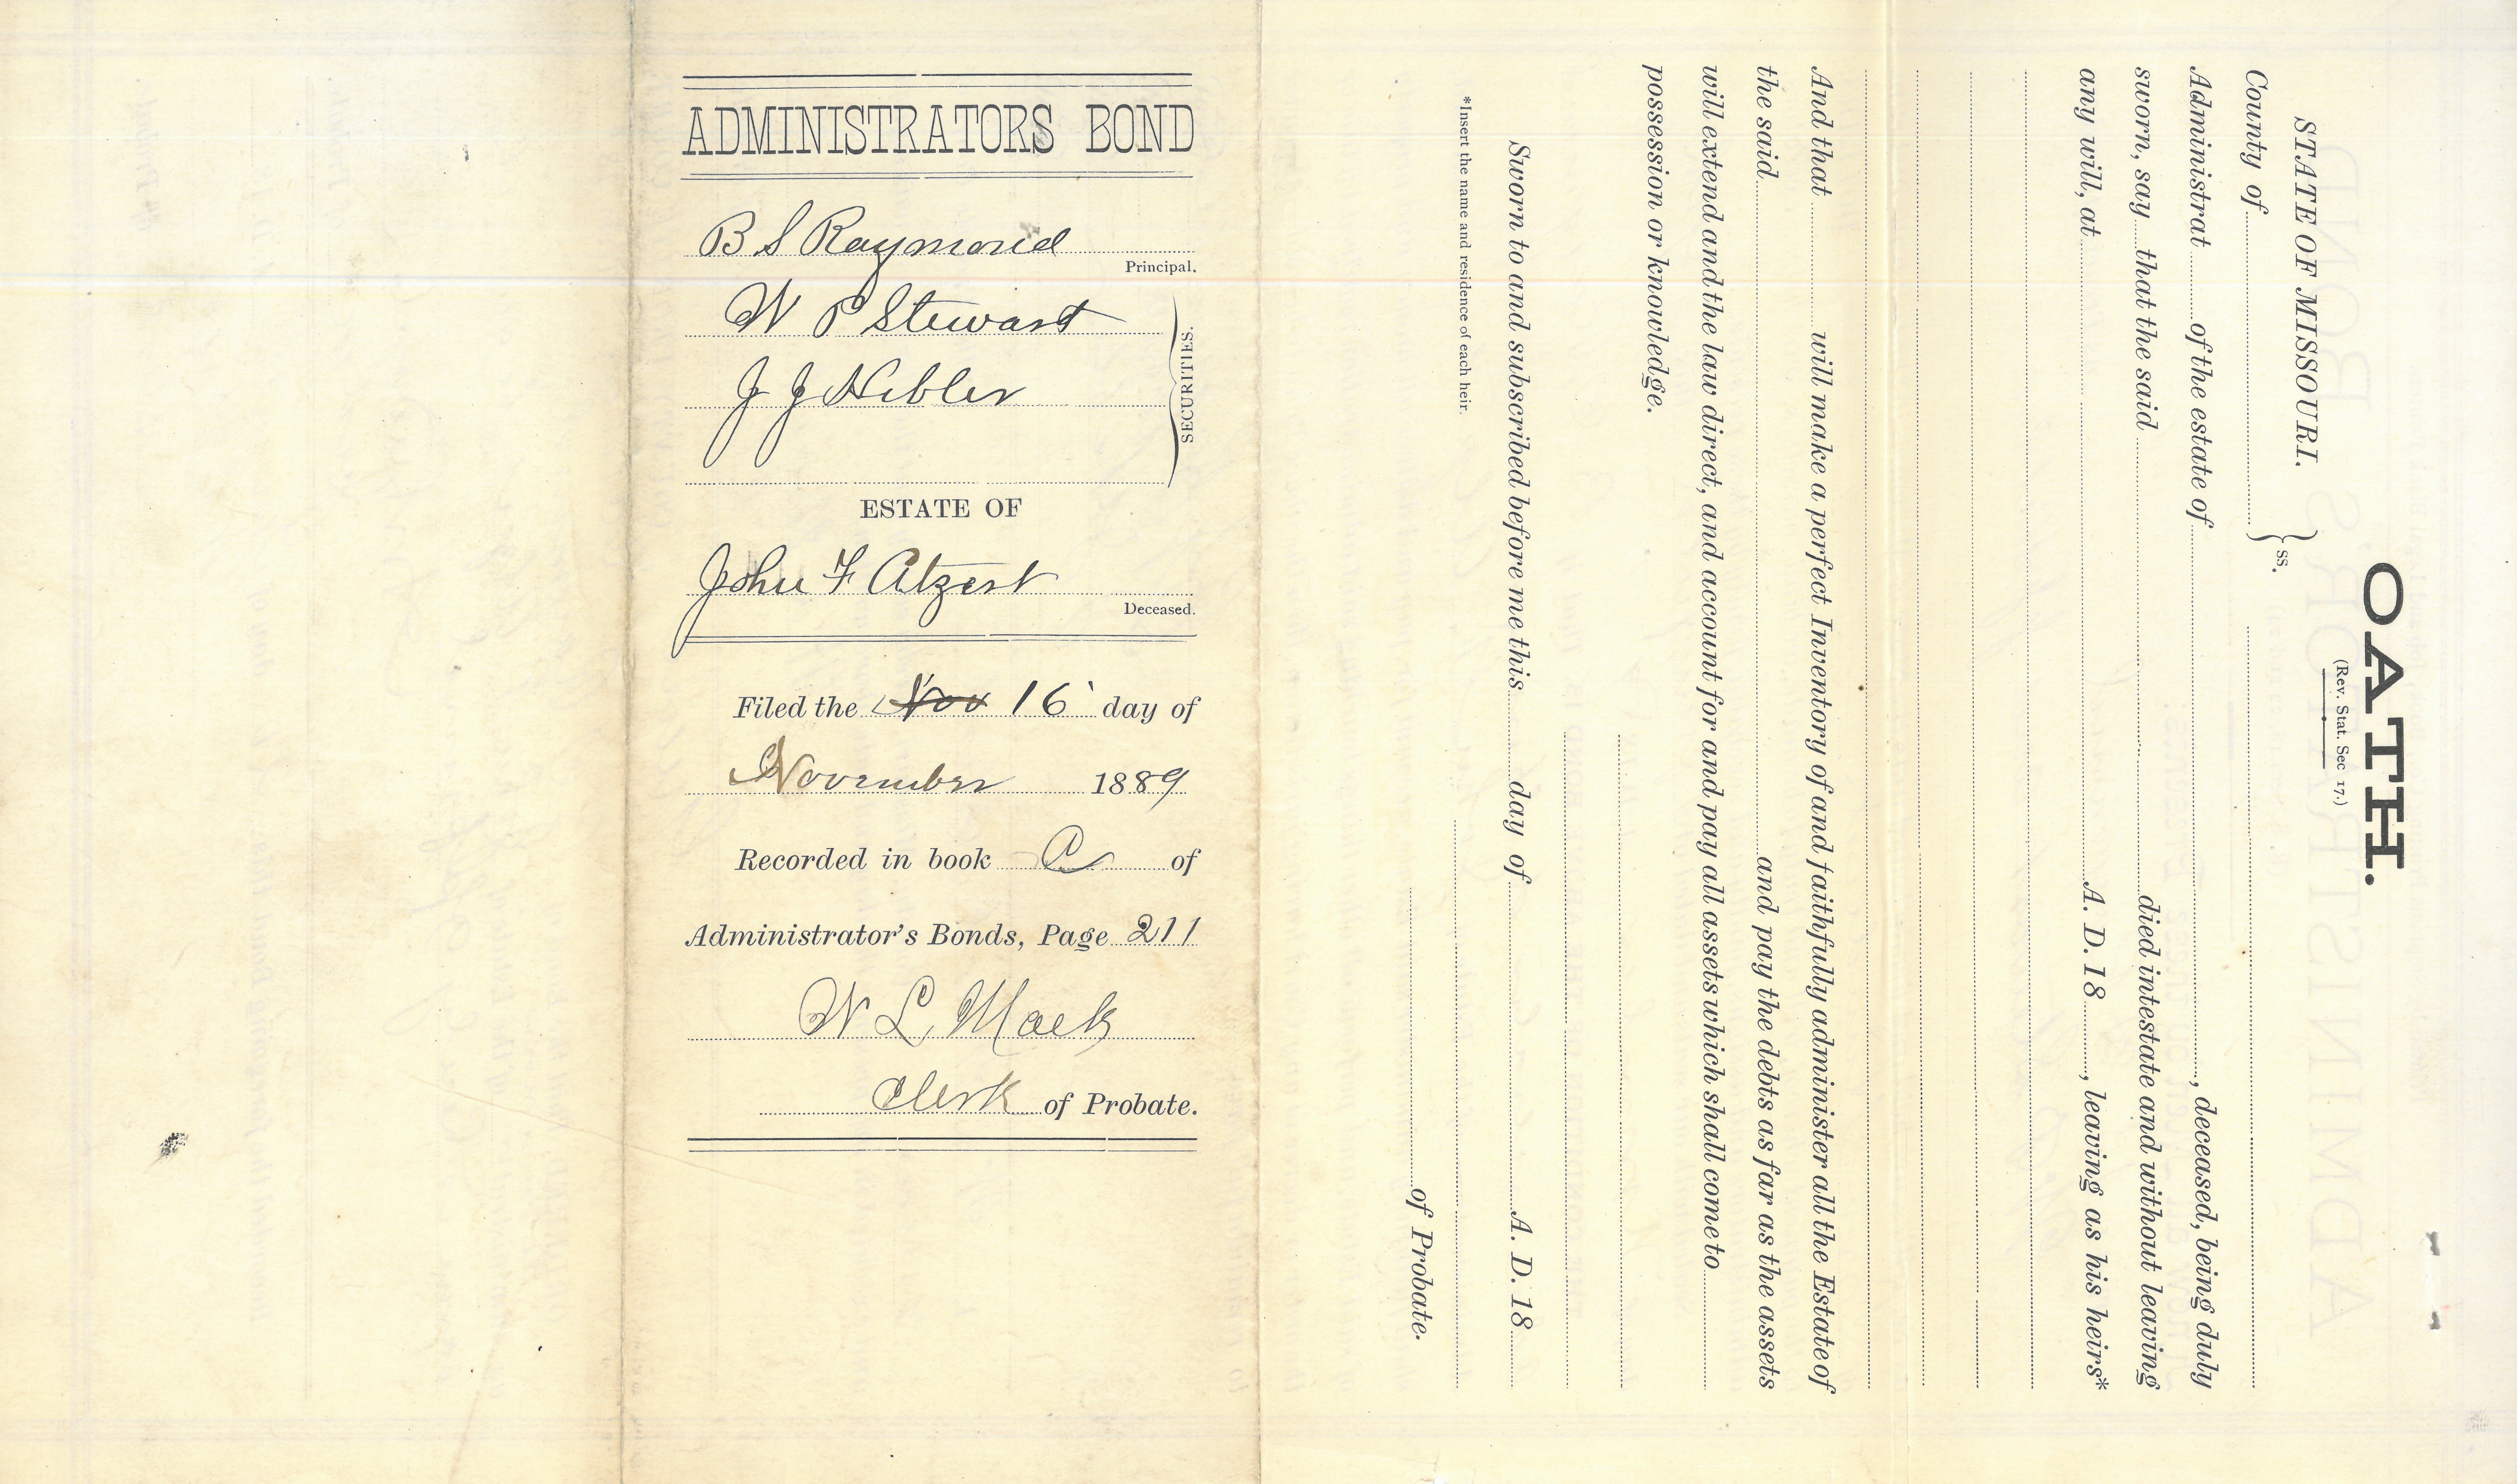 ADMINISTRATORS BOND
B S Raymond
Principal.
W P Stewart
J J Hibler
SECURITIES.
ESTATE OF
John F Atzert
Deceased.
Filed the Nov 16 day of
November 1889
Recorded in book C of
Administrator's Bonds, Page 211
W L Mack
Clerk of Probate.
OATH.
(Rev. Stat. Sec 17.)
STATE OF MISSOURI.
County of ss.
Administrat of the estate of , deceased, being duly
sworn, say that the said died intestate and without leaving
any will, at A. D. 18 , leaving as his heirs*
And that will make a perfect Inventory of and faithfully administer all the Estate of
the said and pay the debts as far as the assets
will extend and the law direct, and account for and pay all assets which shall come to
possession or knowledge.
Sworn to and subscribed before me this day of A. D. 18
*Insert the name and residence of each heir.
of Probate.